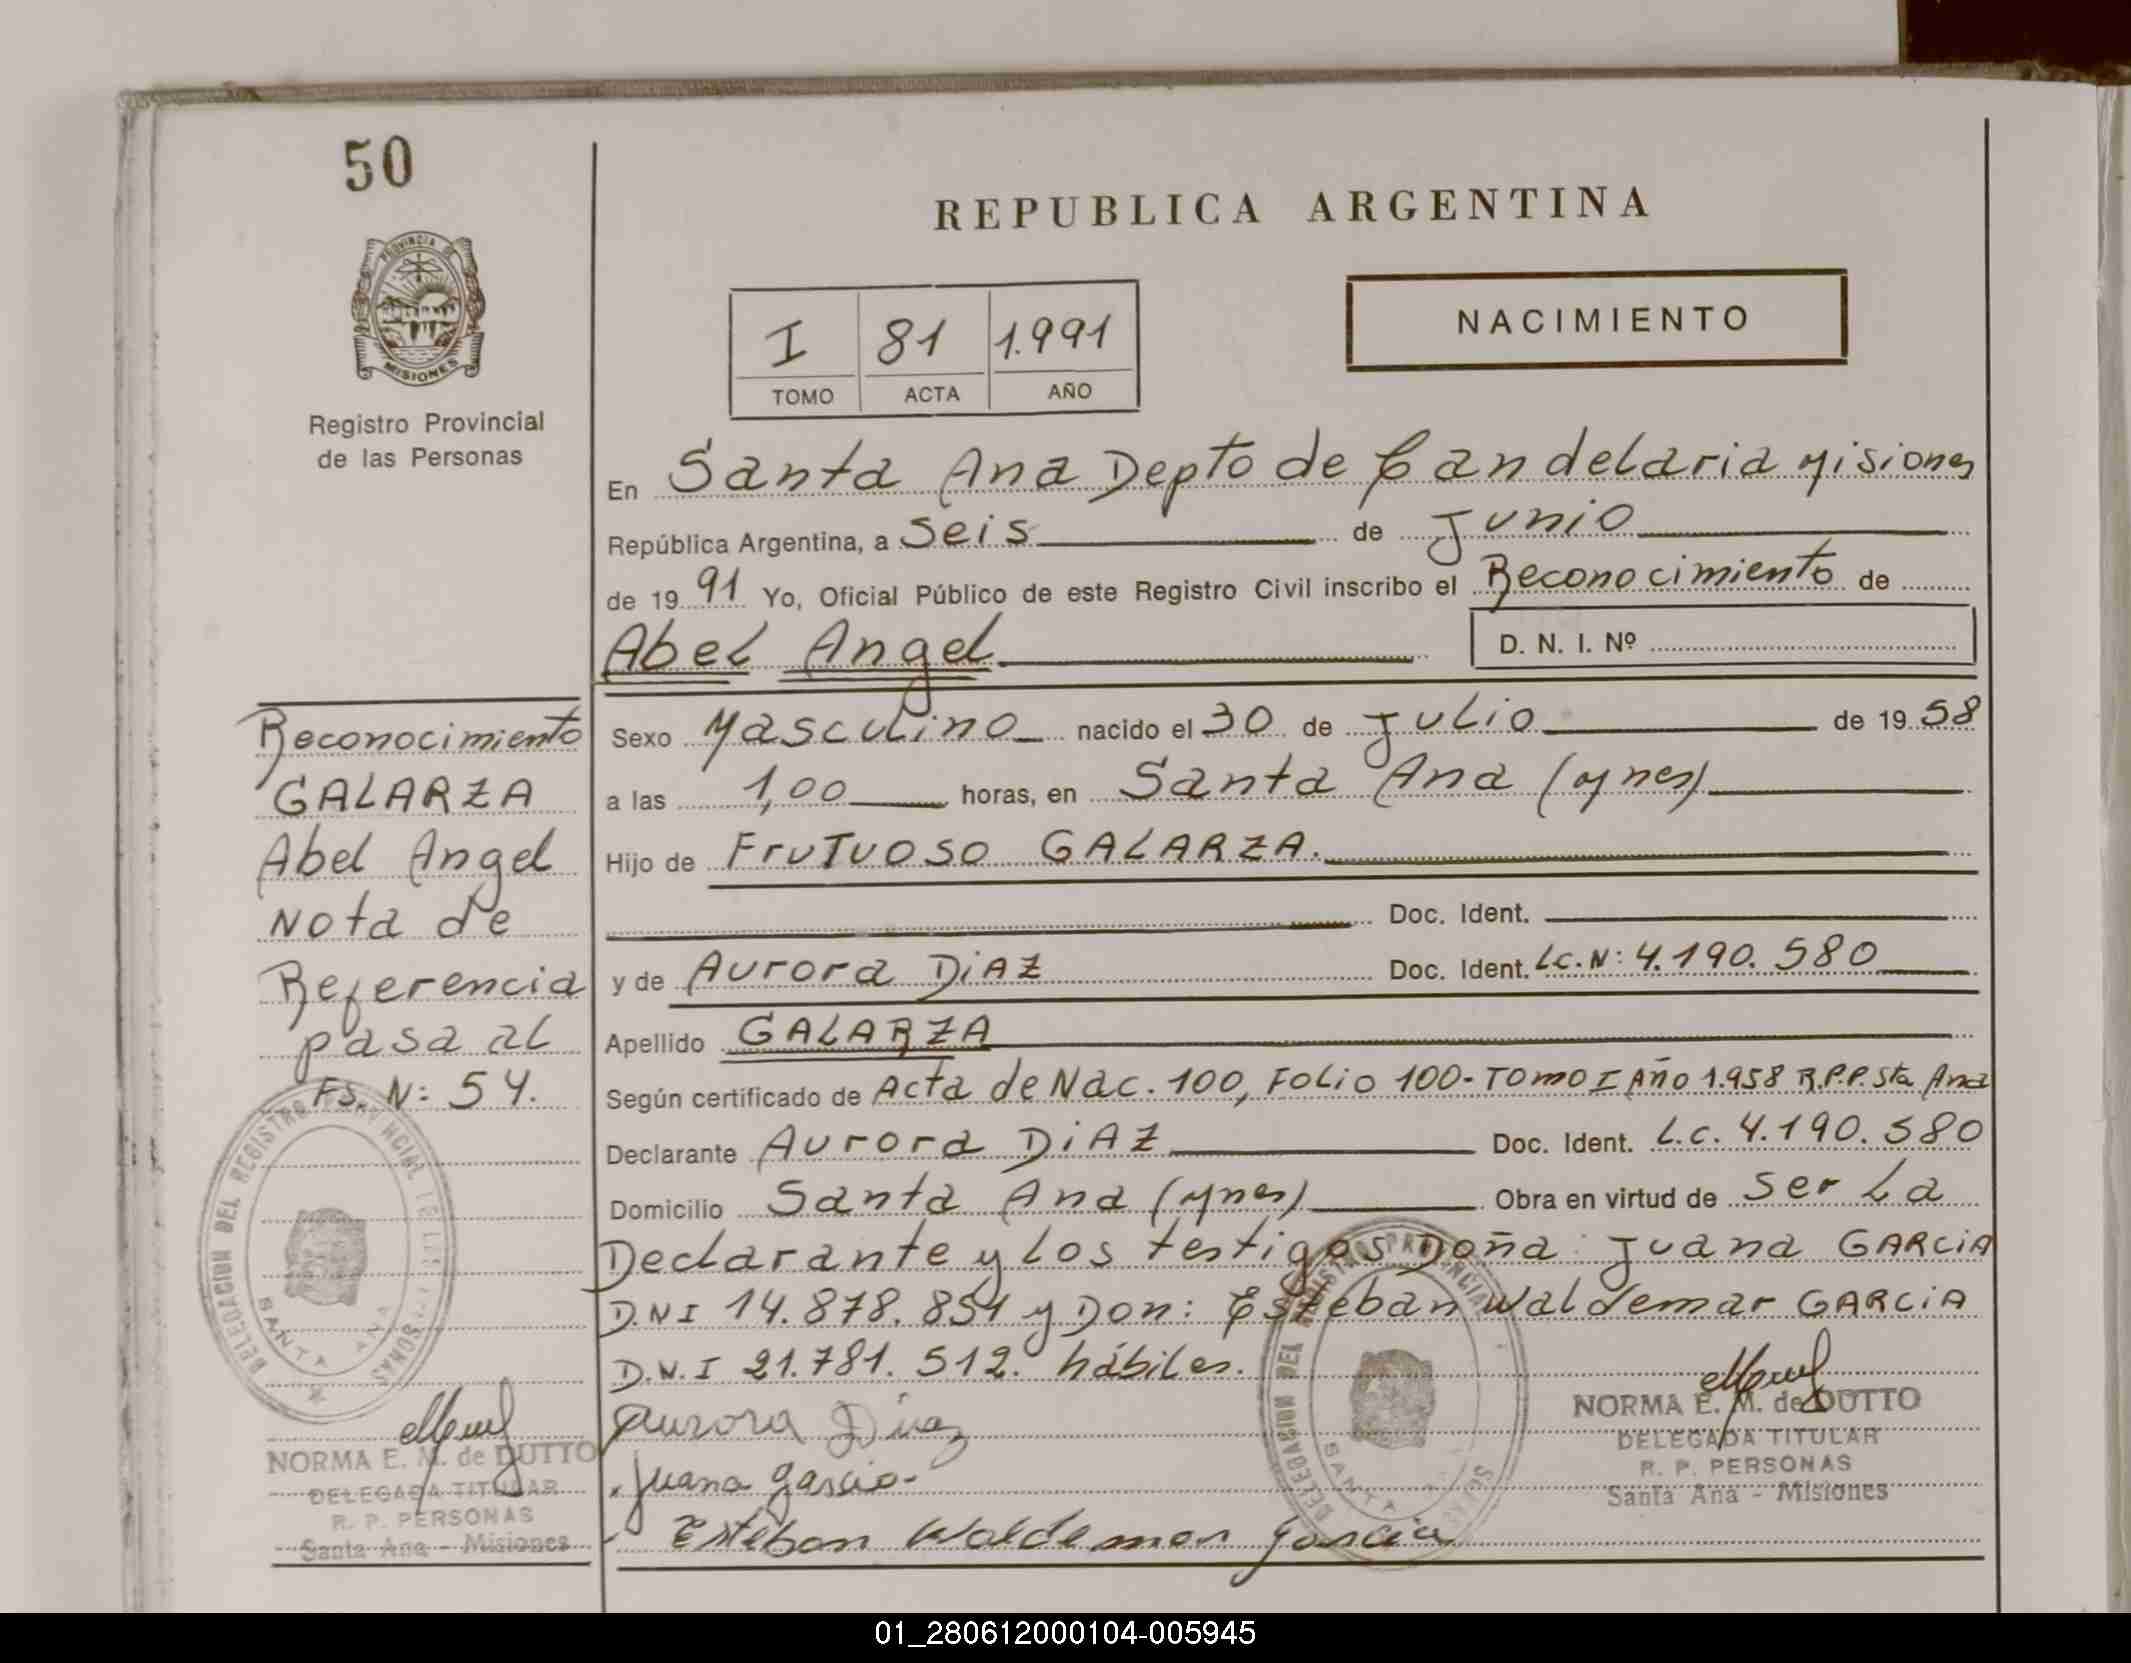 50
PROVINCIA DE
MISIONES
Registro Provincial
de las Personas
REPUBLICA ARGENTINA
I 81 1.991
TOMO ACTA AÑO
NACIMIENTO
En Santa Ana Depto de Candelaria Misiones
República Argentina, a Seis de Junio
de 1991 Yo, Oficial Público de este Registro Civil inscribo el Reconocimiento de
Abel Angel D. N. I. Nº
Sexo Masculino nacido el 30 de Julio de 1958
a las 1,00 horas, en Santa Ana (Mnes)
Hijo de FruTuoso GALARZA.
Doc. Ident.
y de Aurora DiAZ Doc. Ident. Lc. N: 4.190.580
Apellido GALARZA
Según certificado de Acta de Nac. 100, Folio 100 - Tomo I Año 1.958 R.P.P. Sta Ana
Declarante Aurora DiAZ Doc. Ident. L.c. 4.190.580
Domicilio Santa Ana (Mnes) Obra en virtud de ser La
Declarante y los testigos Doña: Juana GARCiA
D.N.I 14.878.854 y Don: Esteban Waldemar GARCiA
D.N.I 21.781.512. hábiles.
Aurora Diaz
Juana Garcia
Esteban Waldemar Garcia
NORMA E. M. de DUTTO
DELEGADA TITULAR
R. P. PERSONAS
Santa Ana - Misiones
DELEGACION DEL REGISTRO PROVINCIAL
SANTA
Reconocimiento
GALARZA
Abel Angel
Nota de
Referencia
pasa al
FS. N: 54.
DELEGACION DEL REGISTRO PROVINCIAL DE LAS PERSONAS
SANTA ANA
NORMA E. M. de DUTTO
DELEGADA TITULAR
R. P. PERSONAS
Santa Ana - Misiones
01_280612000104-005945